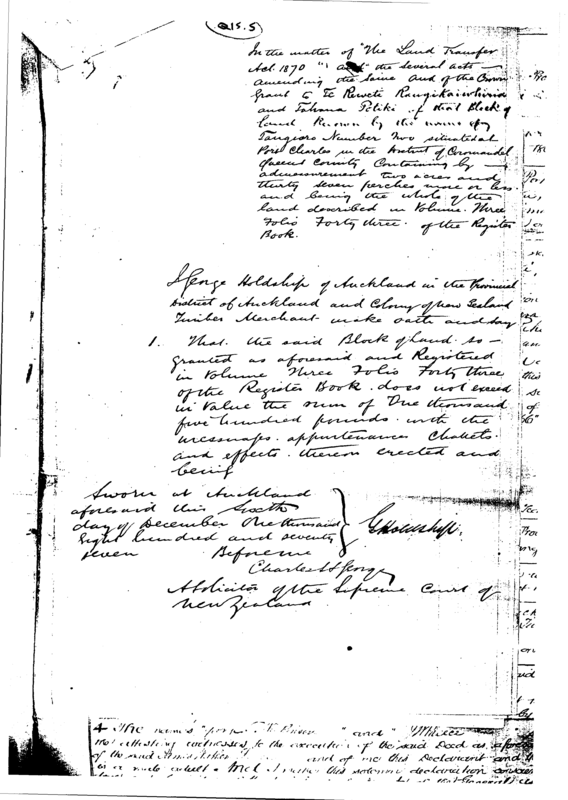 Q15.5
In the matter of "The Land Transfer
Act. 1870" and the several acts
amending the same and of the Crown
Grant to Te Reweti
and Tahana of that Block of
land known by the name of
Number Two situated at
Port Charles in the District of Coromandel
Queens County Containing by
admeasurement two acres and
thirty seven perches more or less
and being the whole of the
land described in Volume Three
Folio Forty three of the Register
Book.
I George Holdship of Auckland in the Provincial
District of Auckland and Colony of New Zealand
Timber Merchant make oath and say
1. That the said Block of Land so
granted as aforesaid and Registered
in Volume Three Folio Forty three
of the Register Book does not exceed
in value the sum of One thousand
five hundred pounds with the
appurtenances Chattels
and effects thereon erected and
being
Sworn at Auckland
aforesaid this Sixth
day of December One thousand
Eight hundred and seventy
seven Before me
GHoldship.
Charles George
A Solicitor of the Supreme Court of
New Zealand.
4 The names and
the attesting witnesses to the execution of the said Deed as
of the said and of me this Declarant and
And I make this solemn declaration